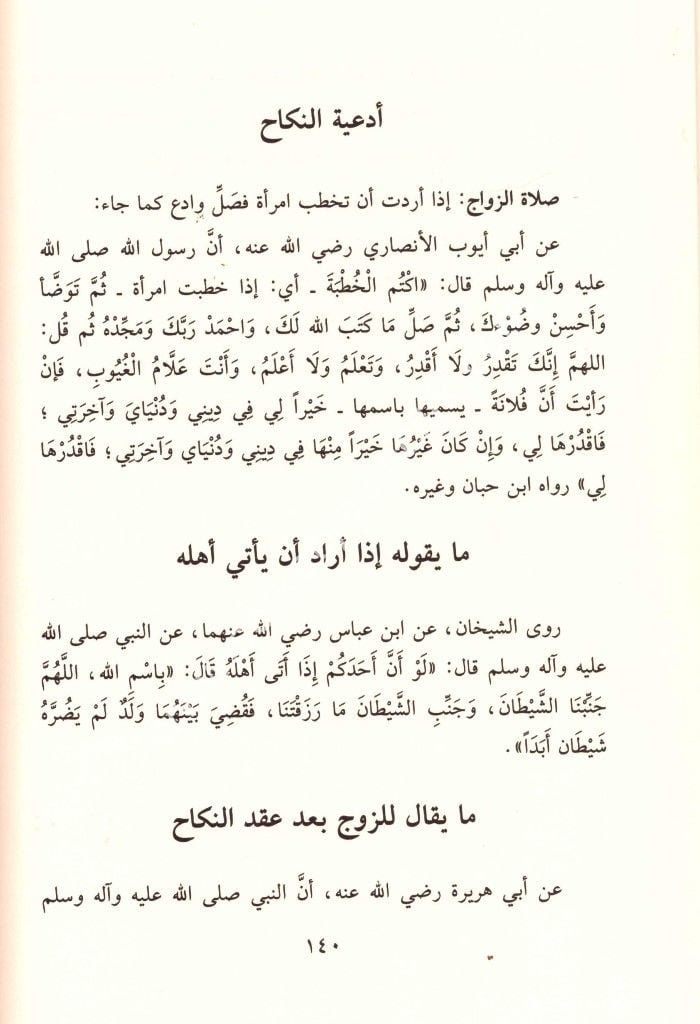 أدعية النكاح
صلاة الزواج: إذا أردت أن تخطب امرأة فصَلِّ وادع كما جاء:
عن أبي أيوب الأنصاري رضي الله عنه، أنَّ رسول الله صلى الله
عليه وآله وسلم قال: «اكْتُم الْخُطْبَةَ ـ أي: إذا خطبت امرأة ـ ثُمَّ تَوَضَّأ
وَأَحْسِنْ وضُوْءكَ، ثُمَّ صَلِّ مَا كَتَبَ الله لَكَ، وَاحْمَدْ رَبَّكَ وَمَجِّدْهُ ثُم قُل:
اللهمَّ إِنَّكَ تَقْدِرُ ولَا أَقْدِرُ، وَتَعْلَمُ وَلَا أَعْلَمُ، وَأَنْتَ عَلَّامُ الْغُيُوبِ، فَإنْ
رَأَيْتَ أَنَّ فُلَانَةً ـ يسميها باسمها ـ خَيْراً لِي فِي دِينِي وَدُنْيَايَ وَآخِرَتِي ؛
فَاقْدُرْهَا لِي، وَإِنْ كَانَ غَيْرُهَا خَيْرَاً مِنْهَا فِي دِينِي وَدُنْيَاي وَآخِرَتِي ؛ فَاقْدُرْهَا
لِي» رواه ابن حبان وغيره.
ما يقوله إذا أراد أن يأتي أهله
روى الشيخان، عن ابن عباس رضي الله عنهما، عن النبي صلى الله
عليه وآله وسلم قال: «لَوْ أَنَّ أَحَدَكُمْ إِذَا أَتَى أَهْلَهُ قَالَ: «بِاسْمِ الله، اللَّهُمَّ
جَنِّبْنَا الشَّيْطَانَ، وَجَنِّبِ الشَّيْطَانَ مَا رَزَقْتَنَا، فَقُضِيَ بَيْنَهُمَا وَلَدٌ لَمْ يَضُرَّهُ
شَيْطَان أَبَدَاً».
ما يقال للزوج بعد عقد النكاح
عن أبي هريرة رضي الله عنه، أنَّ النبي صلى الله عليه وآله وسلم
١٤٠